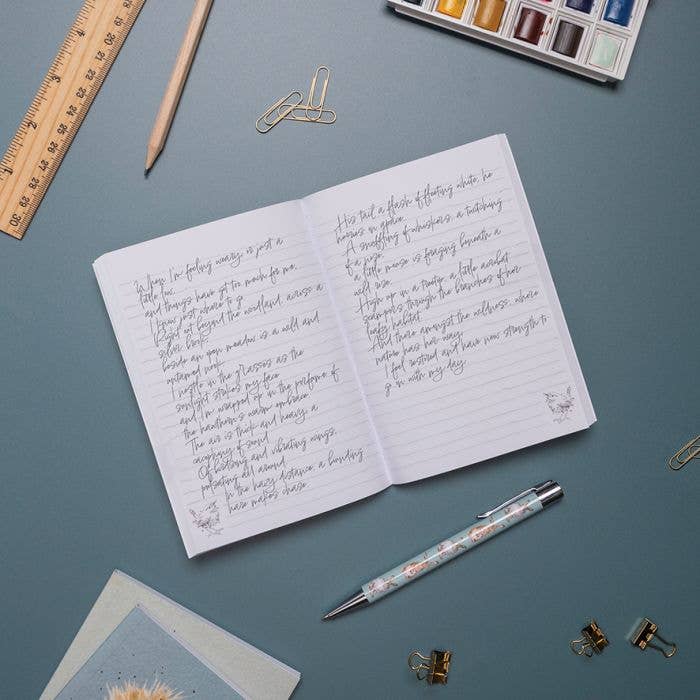 When I'm feeling weary, or just a
little low,
and things have got too much for me,
I know just where to go.
Right out beyond the woodland, across a
silver brook,
beside an open meadow is a wild and
untamed nook.
I nestle in the grasses as the
sunlight strokes my face
and I'm wrapped up in the perfume of
the hawthorn's warm embrace.
The air is thick and heavy, a
cacophony of sound
Of birdsong and vibrating wings,
pulsating all around.
In the hazy distance, a bounding
hare makes chase
His tail a flash of fleeting white, he
in
A snuffling of whiskers, a twitching
of a nose,
a little mouse is foraging beneath a
wild rose.
High up in a treetop, a little acrobat
scampers through the branches of her
leafy habitat.
And there amongst the wildness, where
nature has her way,
I feel restored and have new strength to
go on with my day.
19 20 21 22 23 24 25 26 27 28 29 30